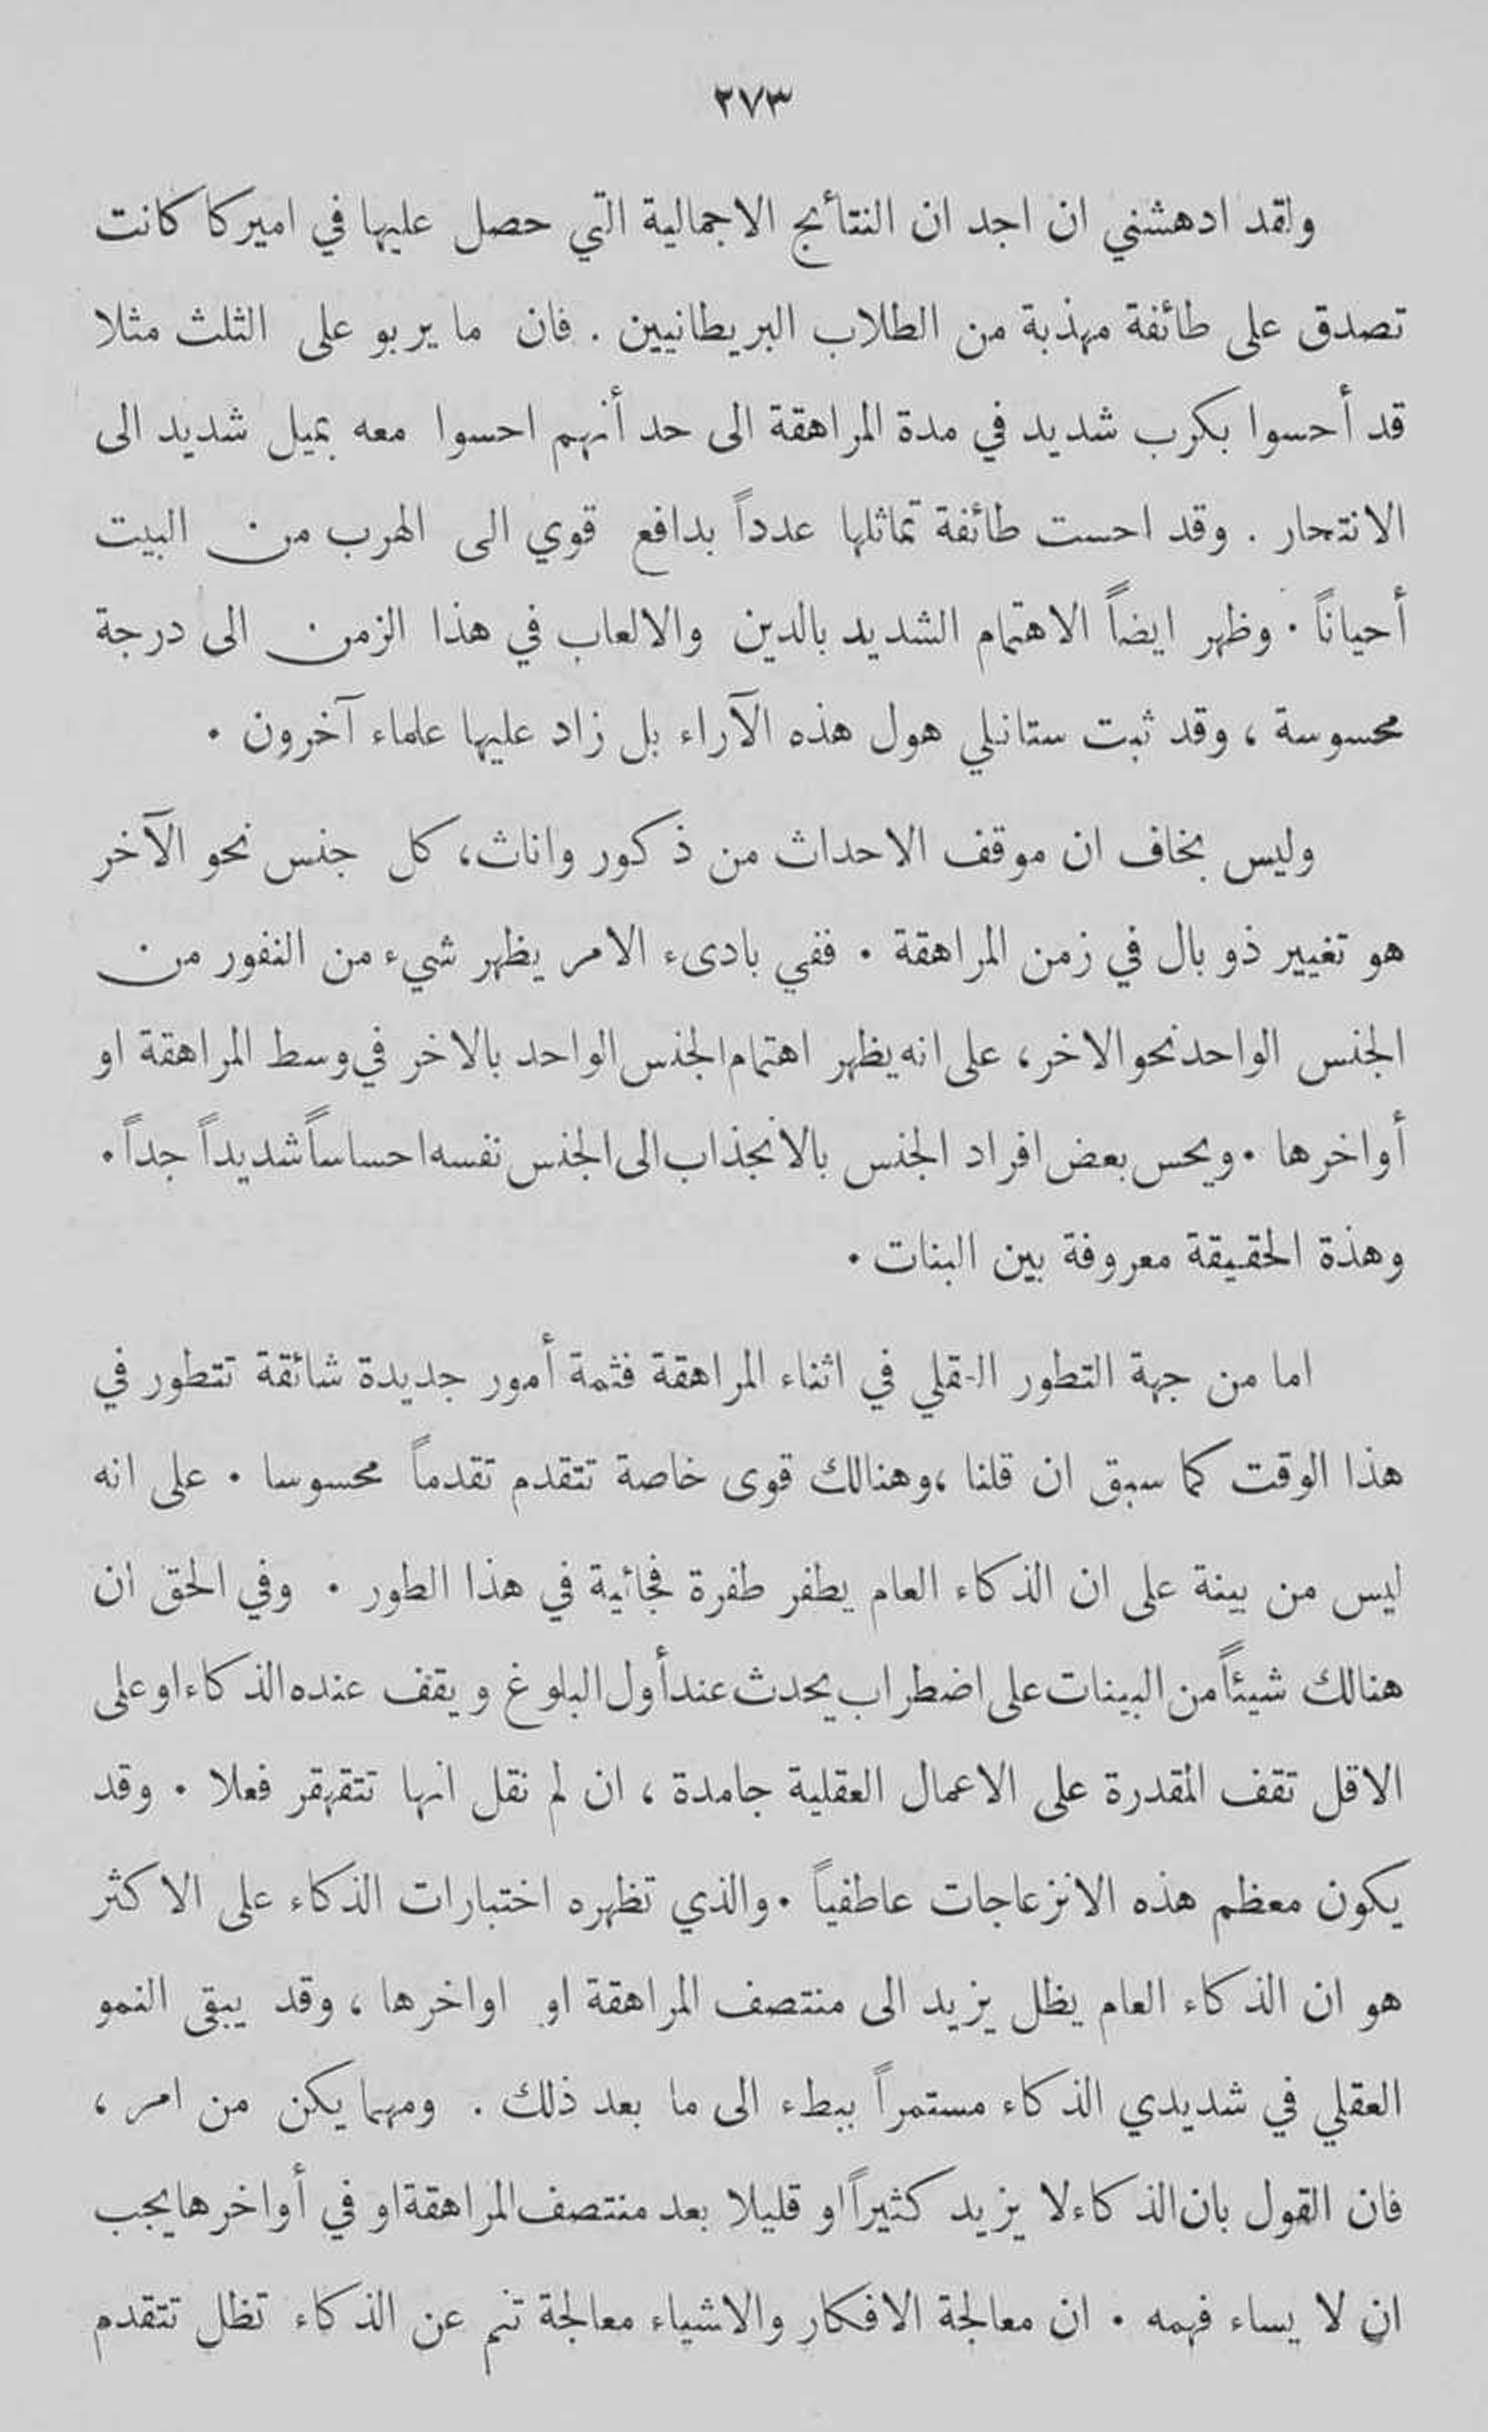 ٢٧٣
ولقد ادهشني ان اجد ان النتائج الاجمالية التي حصل عليها في اميركا كانت
تصدق على طائفة مهذبة من الطلاب البريطانيين . فان ما يربو على الثلث مثلا
قد أحسوا بكرب شديد في مدة المراهقة الى حد أنهم احسوا معه بميل شديد الى
الانتحار . وقد احست طائفة تماثلها عدداً بدافع قوي الى الهرب من البيت
أحياناً . وظهر ايضاً الاهتمام الشديد بالدين والالعاب في هذا الزمن الى درجة
محسوسة ، وقد ثبت ستانلي هول هذه الآراء بل زاد عليها علماء آخرون .
وليس بخاف ان موقف الاحداث من ذكور واناث، كل جنس نحو الآخر
هو تغيير ذو بال في زمن المراهقة . ففي بادىء الامر يظهر شيء من النفور من
الجنس الواحد نحو الاخر ، على انه يظهر اهتمام الجنس الواحد بالاخر في وسط المراهقة او
أواخرها . ويحس بعض افراد الجنس بالانجذاب الى الجنس نفسه احساساً شديداً جداً .
وهذة الحقيقة معروفة بين البنات .
اما من جهة التطور العقلي في اثناء المراهقة فثمة أمور جديدة شائقة تتطور في
هذا الوقت كما سبق ان قلنا ، وهنالك قوى خاصة تتقدم تقدماً محسوسا . على انه
ليس من بينة على ان الذكاء العام يطفر طفرة فجائية في هذا الطور . وفي الحق ان
هنالك شيئاً من البينات على اضطراب يحدث عند أول البلوغ ويقف عنده الذكاء او على
الاقل تقف المقدرة على الاعمال العقلية جامدة ، ان لم نقل انها تتقهقر فعلا . وقد
يكون معظم هذه الانزعاجات عاطفياً . والذي تظهره اختبارات الذكاء على الاكثر
هو ان الذكاء العام يظل يزيد الى منتصف المراهقة او اواخرها ، وقد يبقى النمو
العقلي في شديدي الذكاء مستمراً ببطء الى ما بعد ذلك . ومهما يكن من امر ،
فان القول بان الذكاء لا يزيد كثيراً او قليلا بعد منتصف المراهقة او في أواخرها يجب
ان لا يساء فهمه . ان معالجة الافكار والاشياء معالجة تنم عن الذكاء تظل تتقدم